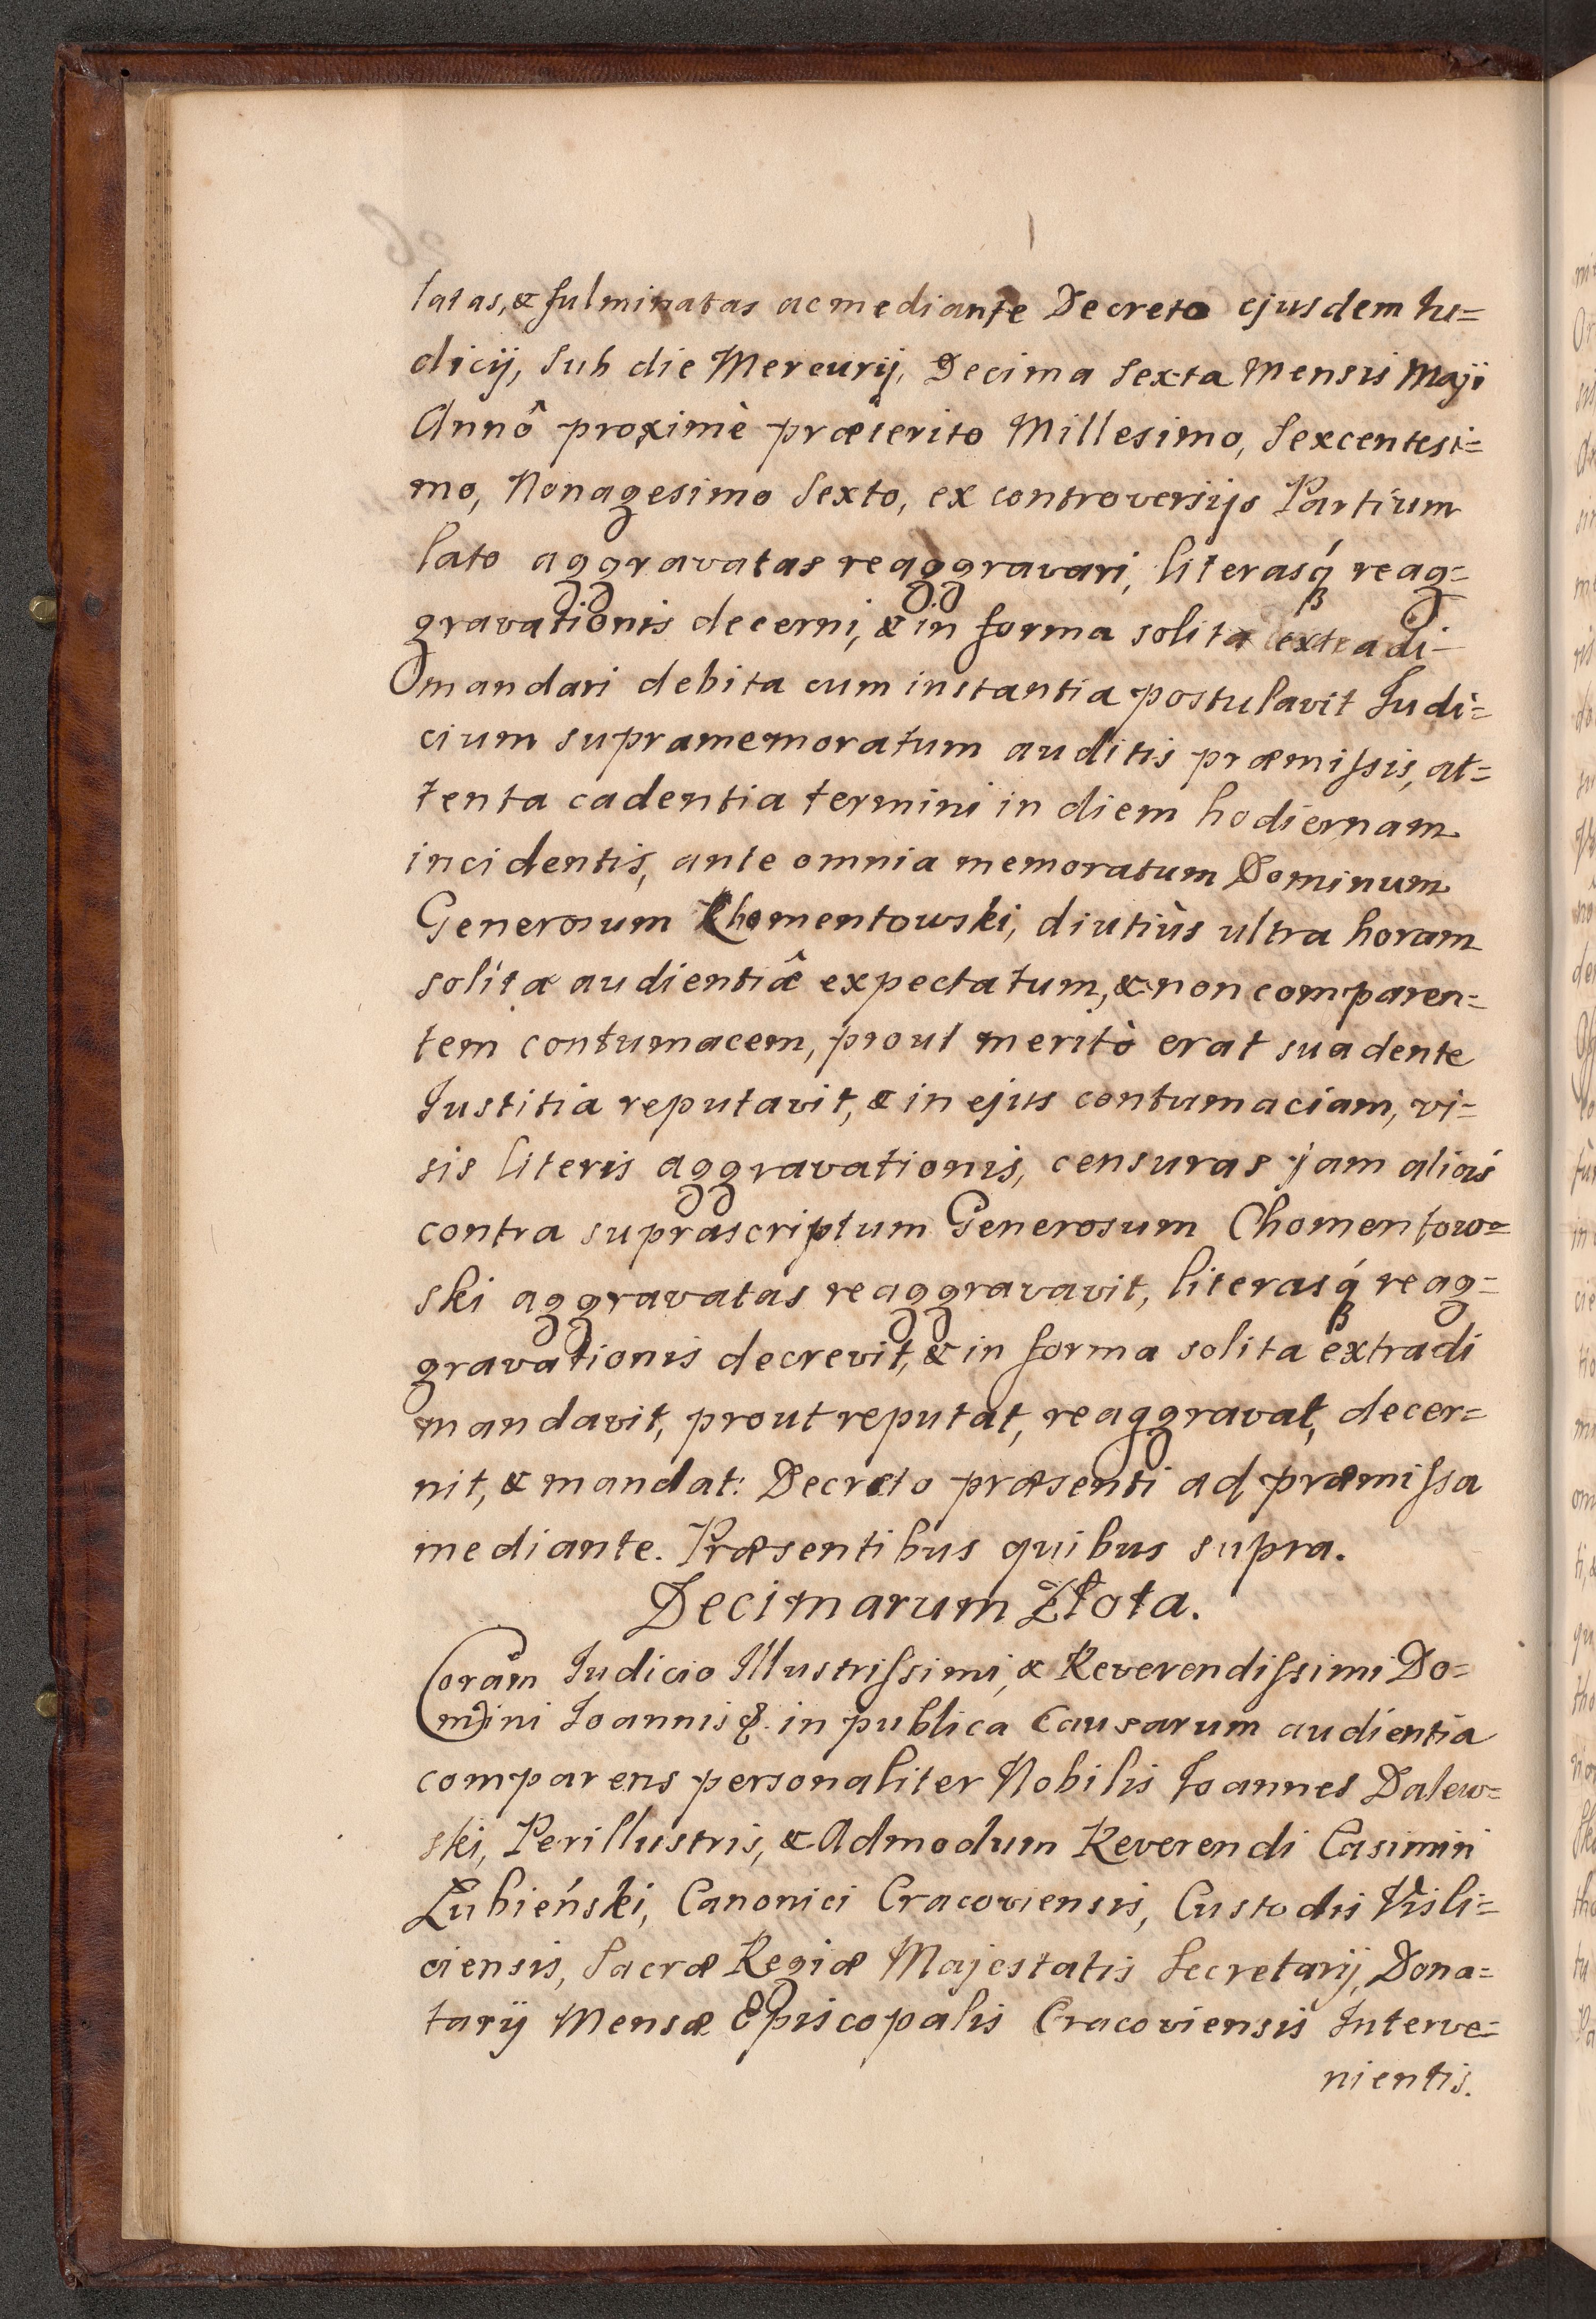 latas, & fulminatas ac mediante Decreto ejusdem Iu=
dicij, Sub die Mercurij, Decima Sexta Mensis Maji
Annô proximè præterito Millesimo, Sexcentesi=
mo, Nonagesimo Sexto, ex controversijs Partium
lato aggravatas reaggravari, literasq́ reag=
gravationis decerni, & in forma solita extradi
mandari debita cum instantia postulavit Iudi=
cium supramemoratum auditis præmiſsis, at=
tenta cadentia termini in diem hodiernam
incidentis, ante omnia memoratum Dominum
Generosum Chomentowski, diutiùs ultra horam
solitæ audientiæ̂ expectatum, & non comparen=
tem contumacem, prout meritò erat suadente
Iustitia reputavit, & in ejus contumaciam, vi=
sis literis aggravationis, censuras jam aliàs
contra suprascriptum Generosum Chomentow=
ski aggravatas reaggravavit, literasq́ reag=
gravationis decrevit, & in forma solita extradi
mandavit, prout reputat, reaggravat, decer=
nit, & mandat: Decreto præsenti ad præmiſsa
mediante. Præsentibus quibus supra.
Decimarum Złota.
Coram Iudicio Illustriſsimi, & Reverendiſsimi Do=
mini Ioannis &. in publica Causarum audientia
comparens personaliter Nobilis Ioannes Dalew=
ski, Perillustris, & Admodum Reverendi Casimiri
Łubieński, Canonici Cracoviensis, Custodis Visli=
ciensis, Sacræ Regiæ Majestatis Secretarij, Dona=
tarij Mensæ Episcopalis Cracoviensis Interve=
nientis.